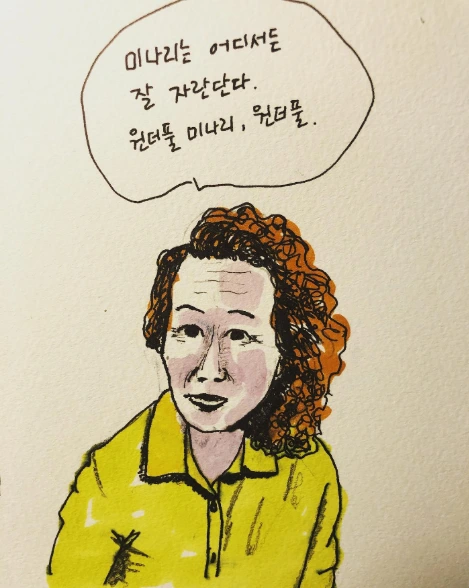 미나리는 어디서든
잘 자란단다.
원더풀 미나리, 원더풀.